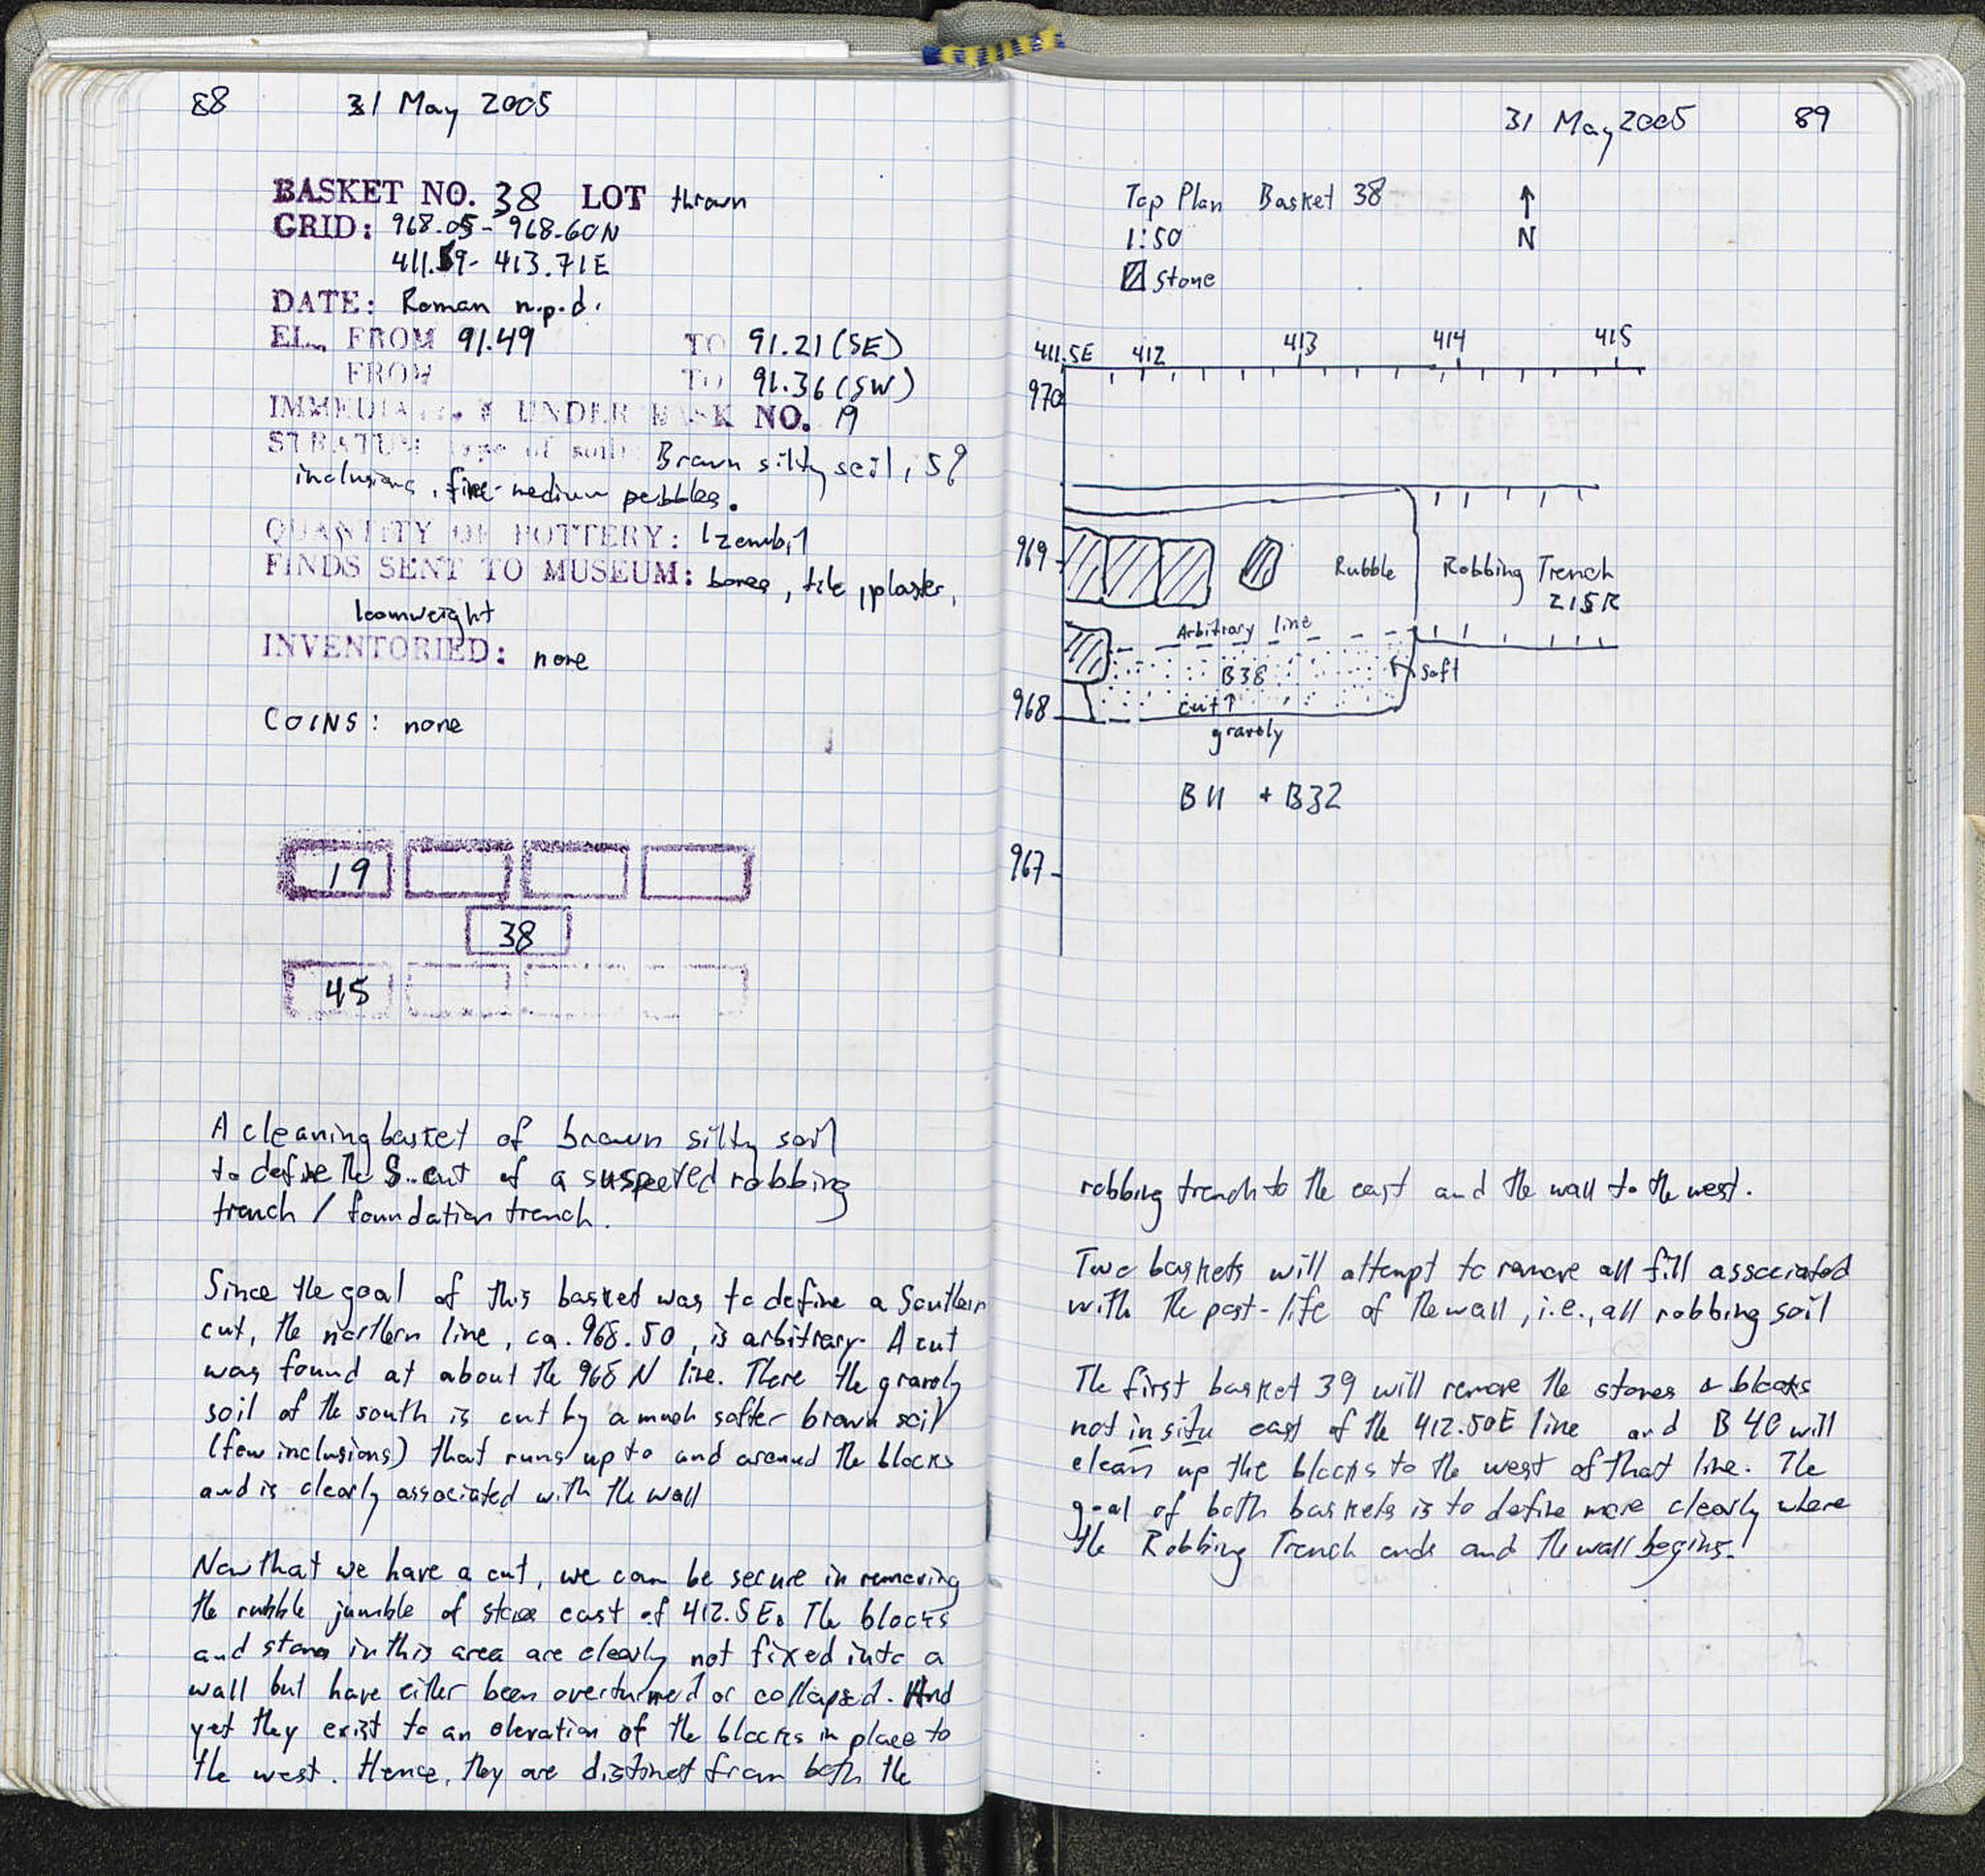 88 31 May 2005
BASKET NO. 38 LOT thrown
GRID: 968.05 - 968.60N
411.59 - 413.71E
DATE: Roman n.p.d.
EL. FROM 91.49 TO 91.21 (SE)
FROM TO 91.36 (SW)
UNDER BASK NO. 19
STRATUM: type of soil: Brown silty soil, 5%
inclusions, fine-medium pebbles.
QUANTITY OF POTTERY: 1 zembil
FINDS SENT TO MUSEUM: bones, tile, plaster,
loomweight
INVENTORIED: none
COINS: none
19
38
45
A cleaning basket of brown silty soil
to define the S. cut of a suspected robbing
trench / foundation trench.
Since the goal of this basket was to define a Southern
cut, the northern line, ca. 968.50, is arbitrary. A cut
was found at about the 968 N line. There the gravely
soil of the south is cut by a much softer brown soil
(few inclusions) that runs up to and around the blocks
and is clearly associated with the wall
Now that we have a cut, we can be secure in removing
the rubble jumble of stone east of 412.5 E. The blocks
and stones in this area are clearly not fixed into a
wall but have either been overturned or collapsed. And
yet they exist to an elevation of the blocks in place to
the west. Hence, they are distinct from both the
31 May 2005 89
Top Plan Basket 38
1:50
N
Stone
411.5E 412 413 414 415
970
969
Rubble
Robbing Trench
215R
Arbitrary line
B38
soft
968
cut
gravely
B11 + B32
967
robbing trench to the east and the wall to the west.
Two baskets will attempt to remove all fill associated
with the post-life of the wall, i.e., all robbing soil
The first basket 39 will remove the stones & blocks
not in situ east of the 412.50E line and B 40 will
clean up the blocks to the west of that line. The
goal of both baskets is to define more clearly where
the Robbing Trench ends and the wall begins.